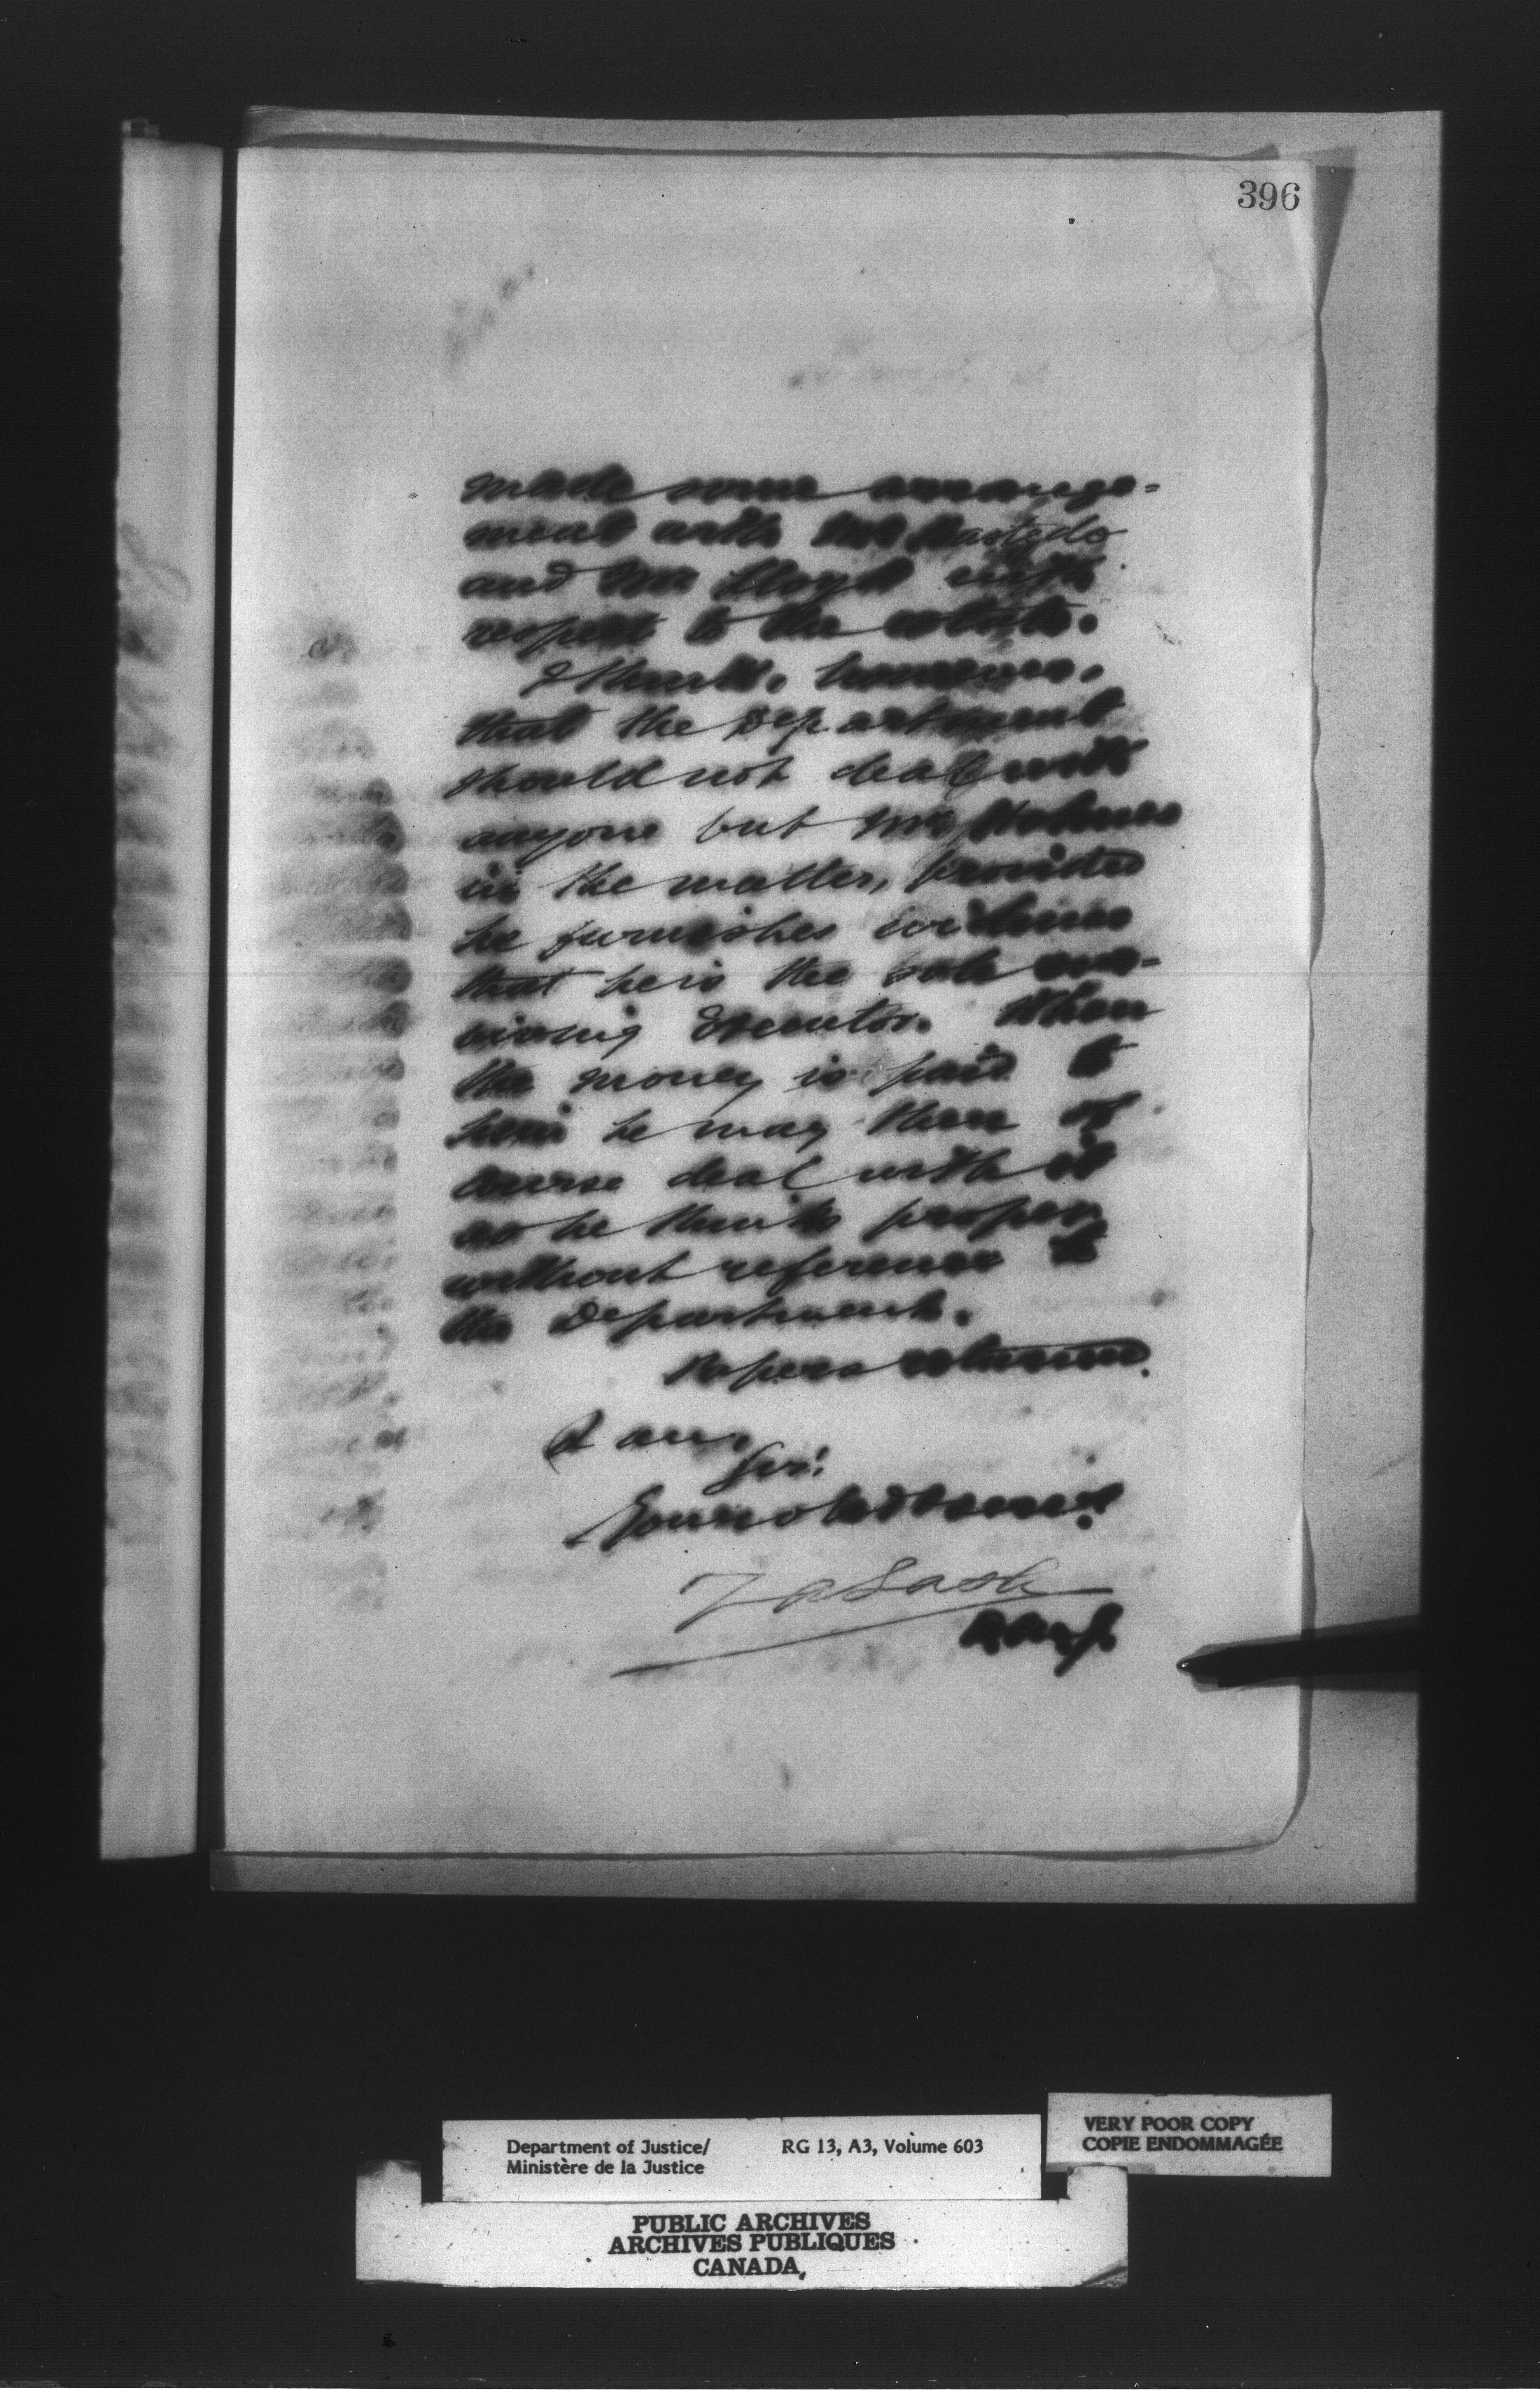 396
made some arrange-
ment with Mr Hastedo
and Mr Lloyd with
respect to the estate.
I think, however,
that the Department
should not deal with
anyone but Mr Holmes
in the matter, provided
he furnishes evidence
that he is the sole sur-
viving Executor. When
the money is paid to
him he may then of
course deal with it
as he thinks proper
without reference to
the Department.
Papers returned.
I am,
Sir,
Your obedt servt
Z A Lash
D.M.J.
VERY POOR COPY
COPIE ENDOMMAGÉE
Department of Justice/ RG 13, A3, Volume 603
Ministère de la Justice
PUBLIC ARCHIVES
ARCHIVES PUBLIQUES
CANADA